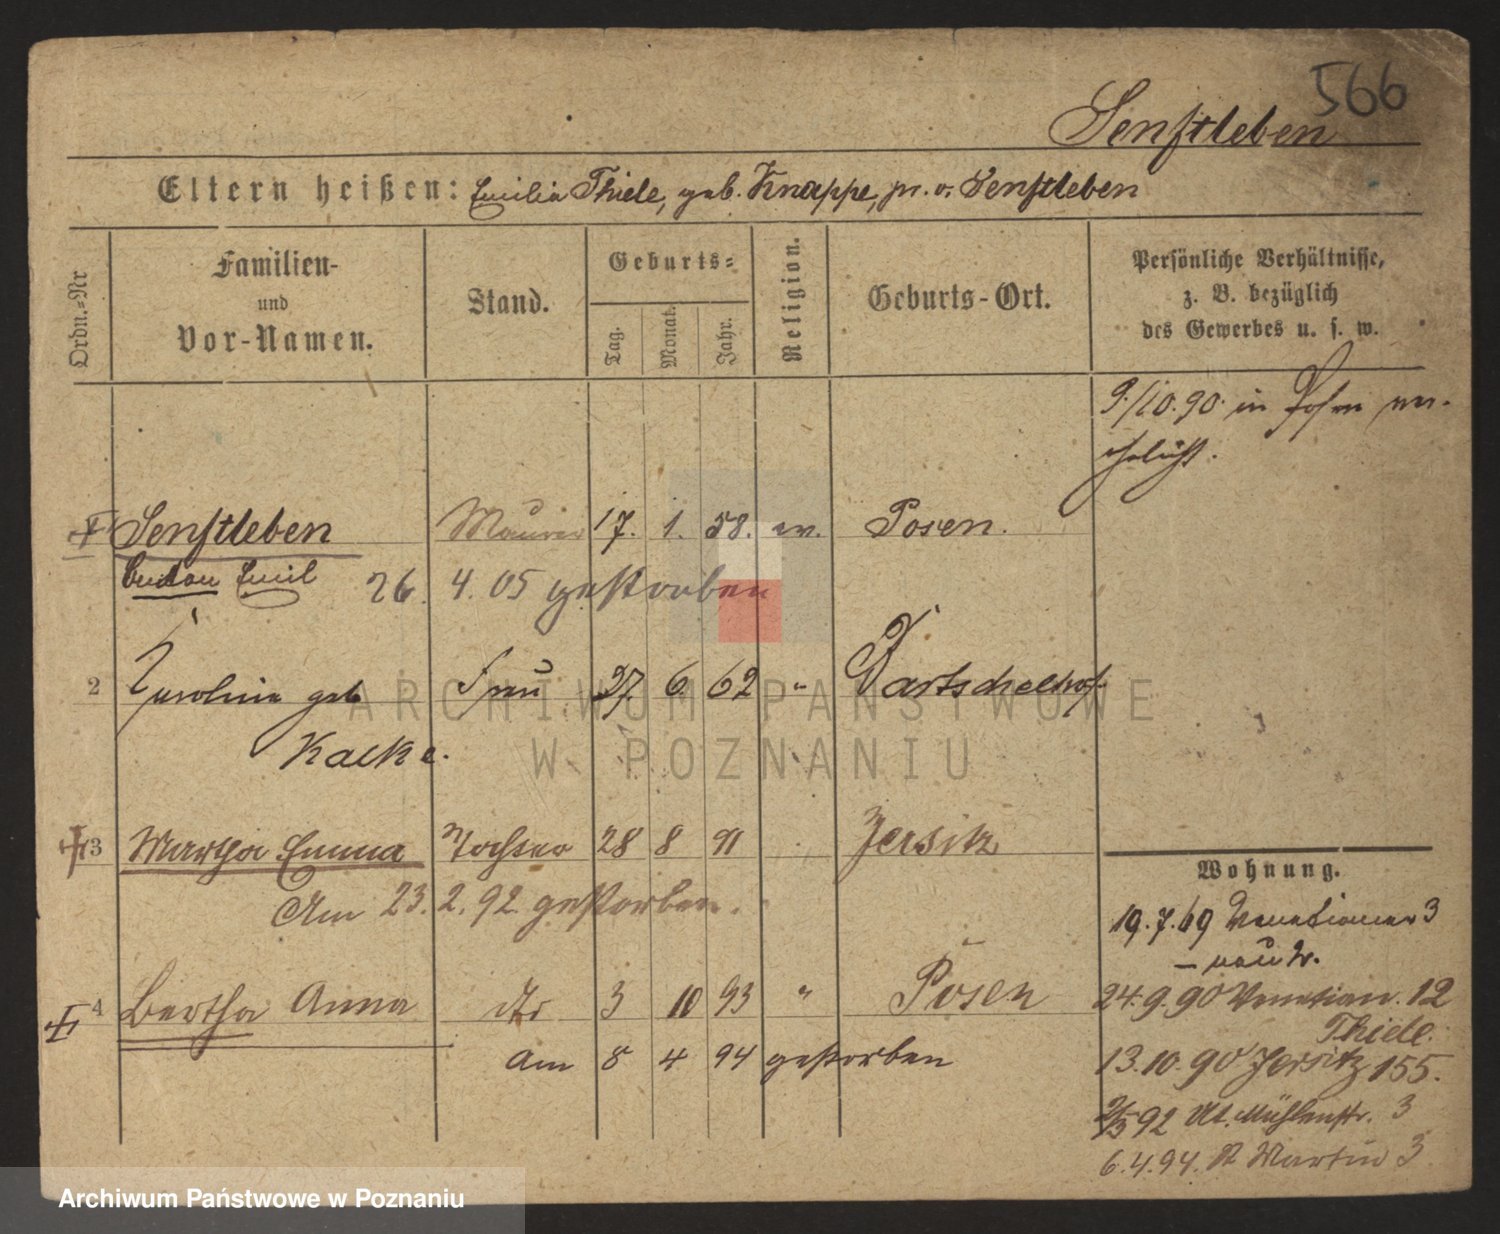 566
Senftleben
Eltern heißen: Emilia Thiele, geb. Knappe, pr. v. Senftleben
Ordn.-Nr
Familien-
und
Vor-Namen.
Stand.
Geburts-
Tag.
Monat.
Jahr.
Religion.
Geburts-Ort.
Persönliche Verhältnisse,
z. B. bezüglich
des Gewerbes u. s. w.
9./10.90. in Posen ver-
ehelicht.
Senftleben Maurer 17. 1. 58. ev. Posen.
Emil 26. 4. 05 gestorben
2 Karoline geb Frau 27. 6 62 " Bartschelhof
Kaelke.
3 Martha Emma Tochter 28 8 91 Jersitz
Am 23. 2. 92 gestorben.
4 Bertha Anna dto 3 10 93 " Posen
am 8 4 94 gestorben
Wohnung.
19.7.69 Venetianer 3
24.9.90 Venetian. 12
Thiele.
13.10.90 Jersitz 155.
2/3 92 Mühlenstr. 3
6.4.94. St Martin 3
ARCHIWUM PAŃSTWOWE
W POZNANIU
Archiwum Państwowe w Poznaniu